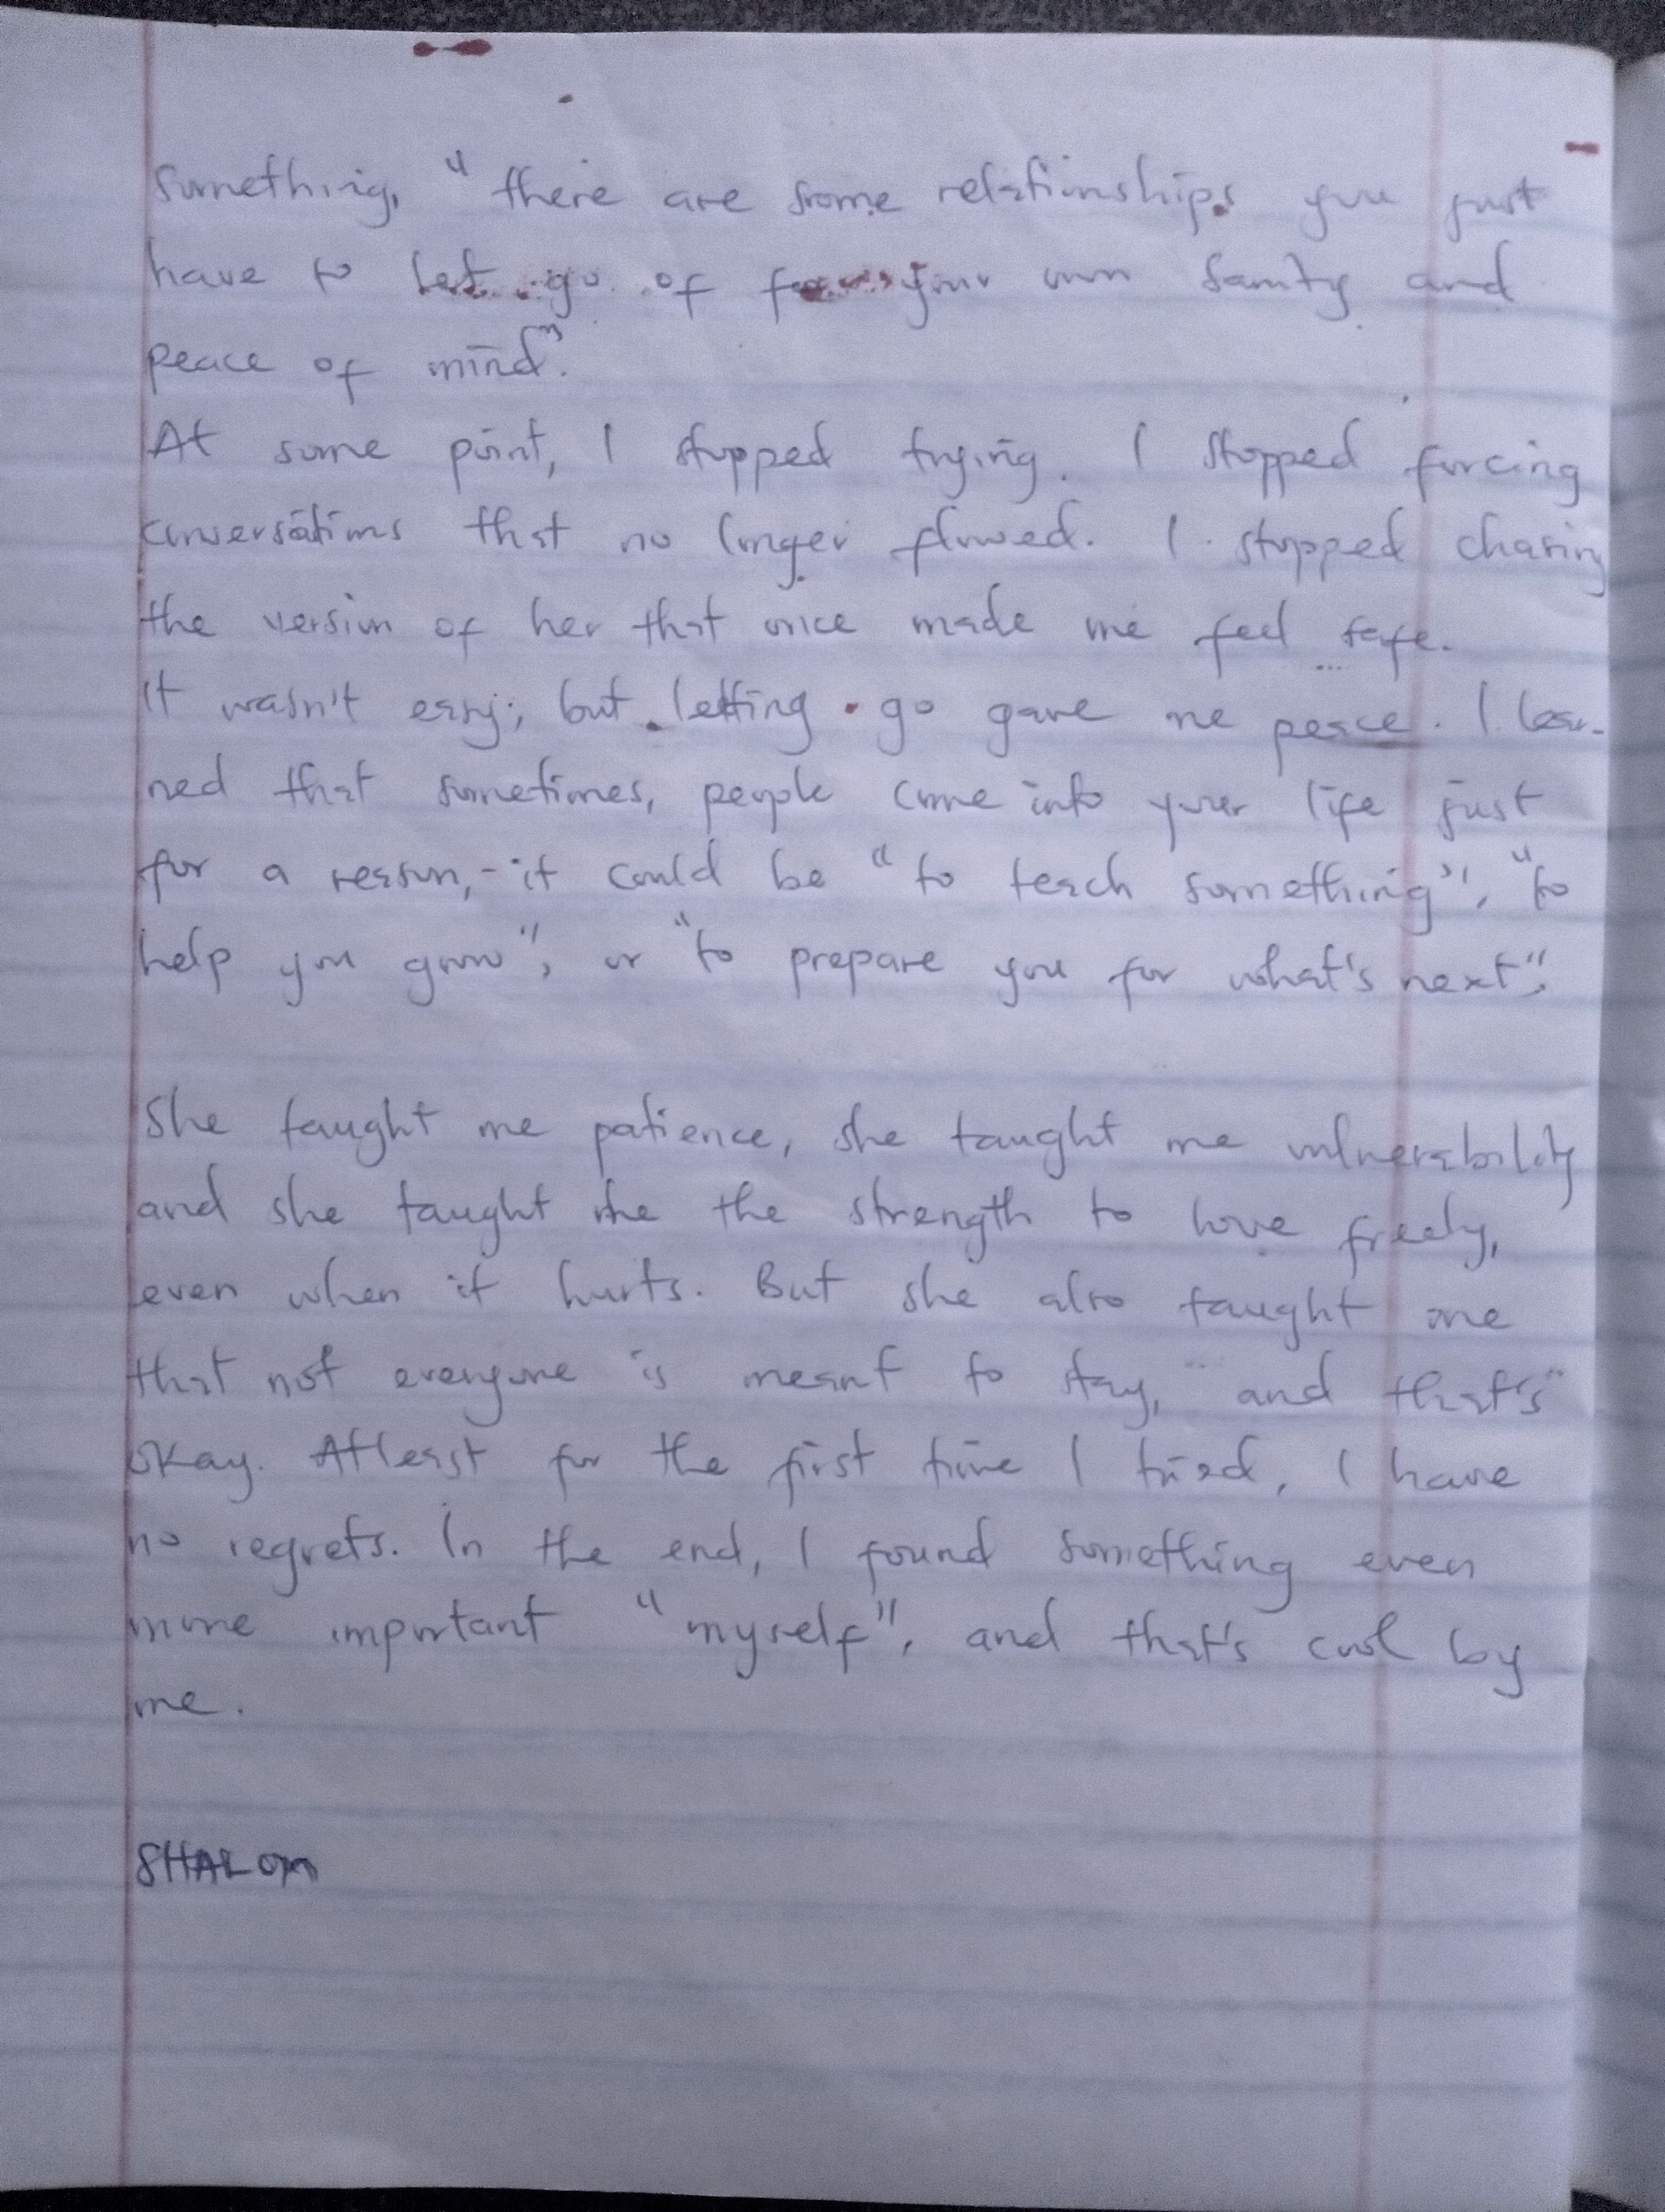 something, "there are some relationships you just
have to let go of for your own sanity and
peace of mind".
At some point, I stopped trying. I stopped forcing
conversations that no longer flowed. I stopped chasing
the version of her that once made me feel safe.
It wasn't easy, but letting go gave me peace. I lear-
ned that sometimes, people come into your life just
for a reason,- it could be "to teach something", "to
help you grow", or "to prepare you for what's next".
She taught me patience, she taught me vulnerability
and she taught me the strength to love freely,
even when it hurts. But she also taught me
that not everyone is meant to stay, and that's
okay. Atleast for the first time I tried, I have
no regrets. In the end, I found something even
more important "myself", and that's cool by
me.
SHALOM